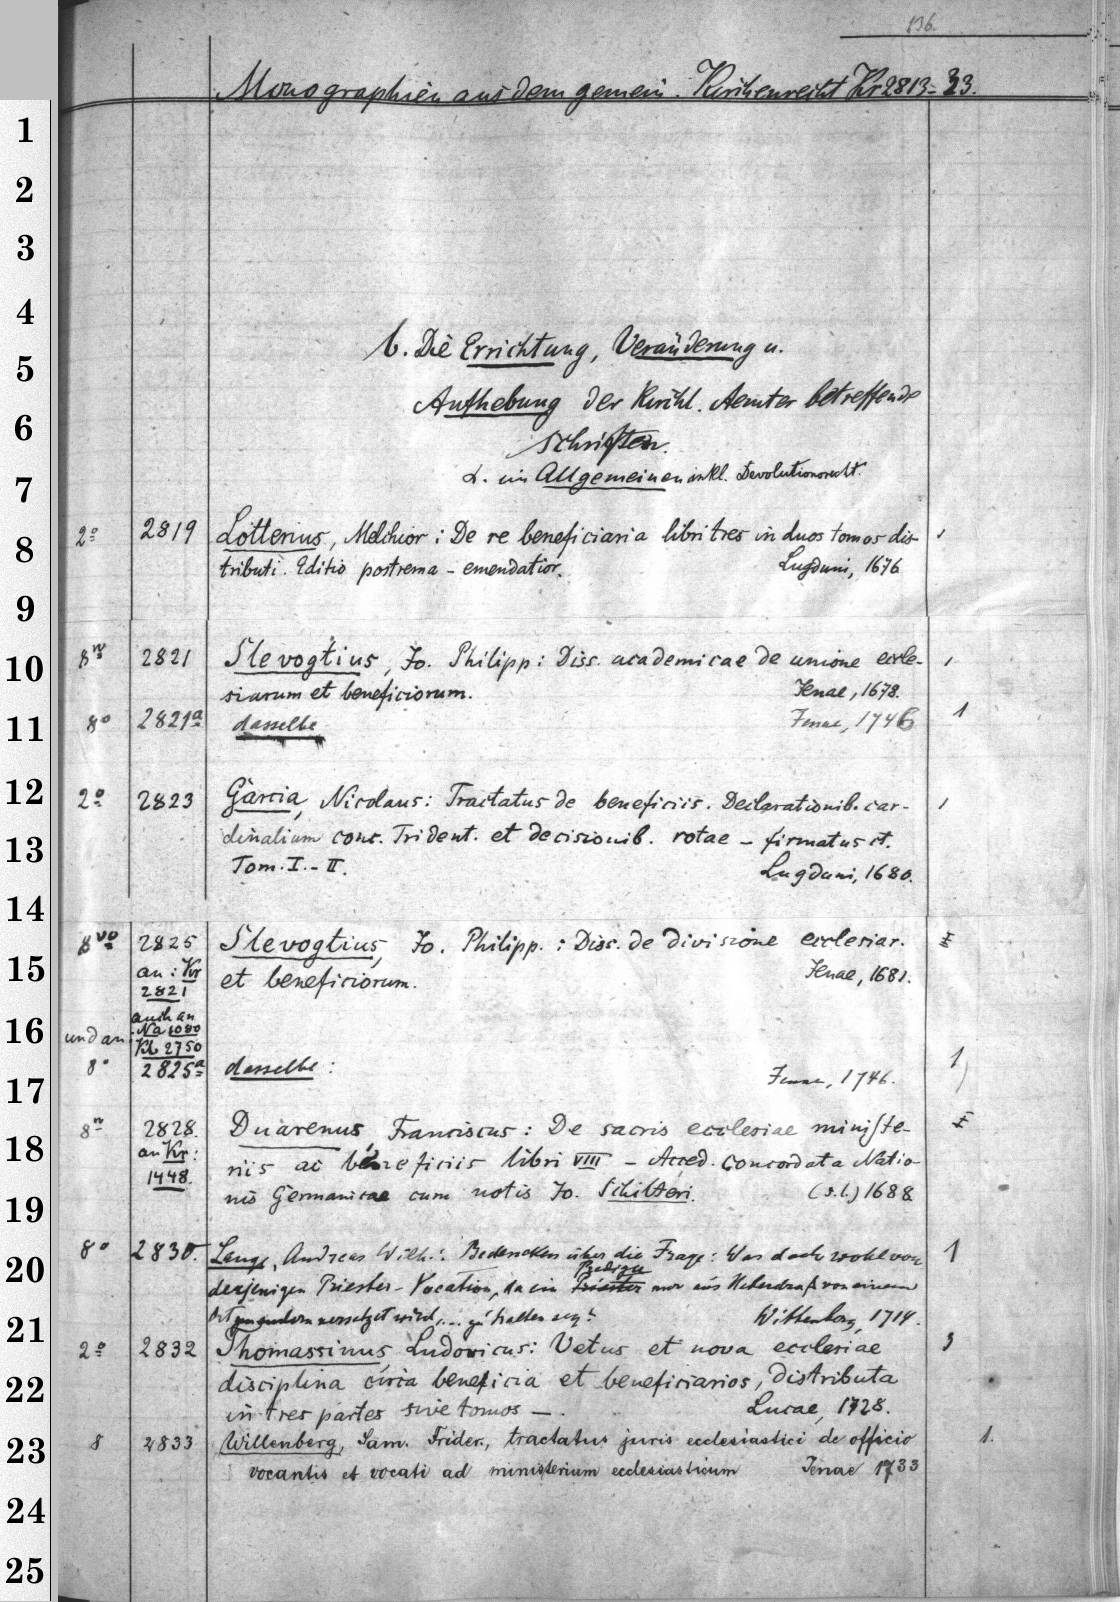 136.
Monographien aus dem gemein. Kirchenrecht Kr 2813-33.
1
2
3
4
5
6
7
8
9
10
11
12
13
14
15
16
17
18
19
20
21
22
23
24
25
b. Die Errichtung, Veränderung u.
Aufhebung der Kirchl. Aemter betreffende
Schriften.
α. im Allgemeinen inkl. Devolutionsrecht.
2º 2819 Lotterius, Melchior: De re beneficiaria libri tres in duos tomos dis- 1
tributi. Editio postrema - emendatior. Lugduni, 1676
8vo 2821 Slevogtius, Jo. Philipp: Diss. academicae de unione eccle- 1
siarum et beneficiorum. Jenae, 1678.
8º 2821a dasselbe Jenae, 1746 1
2º 2823 Garcia, Nicolaus: Tractatus de beneficiis. Declarationib. car- 1
dinalium conc. Trident. et decisionib. rotae - firmatus et.
Tom. I. - II. Lugduni, 1680.
8vo 2825 Slevogtius, Jo. Philipp.: Diss. de divisione ecclesiar.
an: Kr et beneficiorum. Jenae, 1681.
2821
auch an
Na 1080
und an Kl 2750
8º 2825a dasselbe: Jenae, 1746. 1
8vo 2828. Duarenus, Franciscus: De sacris ecclesiae ministe-
an Kr: riis ac beneficiis libri VIII - Acced. Concordata Natio-
1448. nis Germanicae cum notis Jo. Schilteri. (s.l.) 1688
8º 2830. Lange, Andreas Wilh.: Bedencken über die Frage: Was doch wohl von 1
Prediger
derjenigen Priester-Vocation, da ein Priester nur aus von einem
Ort zum andern versetzet wird, .... zu halten sey? Wittenberg, 1714.
2º 2832 Thomassinus, Ludovicus: Vetus et nova ecclesiae 3
disciplina circa beneficia et beneficiarios, distributa
in tres partes sive tomos -. Lucae, 1728.
8 2833 Willenberg, Sam. Frider., tractatus juris ecclesiastici de officio 1.
vocantis et vocati ad ministerium ecclesiasticum Jenae 1733